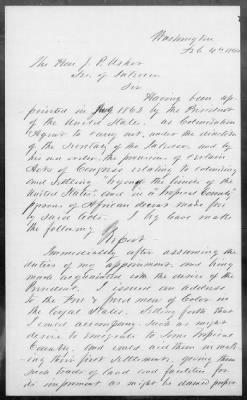 Washington
Feb. 4th 186
The Hon J. P. Usher
Sec. of Interior
Sir
Having been ap-
pointed in 1862 by the President
of the United States, as Colonization
Agent to carry out, under the direction
of the Secretary of the Interior, and by
his own orders, the provisions of certain
Acts of Congress relating to colonizing
and settling beyond the limits of the
United States, and in a Tropical Country
persons of African descent made free
by said Acts. I beg leave make
the following
Report
Immediately after assuming the
duties of my appointment, and being
made acquainted with the desire of the
President, I issued an address
to the Free & freed men of Color in
the loyal States, Setting forth that
I would accompany such as might
desire to emigrate to Some Tropical
Country, and would aid them in mak-
ing their first Settlement, giving them
such tracts of land and facilities for
its improvement as might be deemed proper